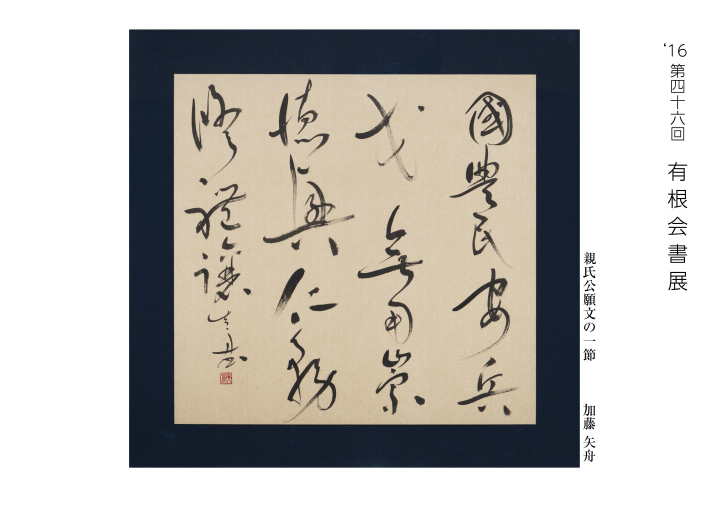 '16 第四十六回 有根会書展
國豊民安兵
戈無用崇
徳興仁務
修禮讓
親氏公願文の一節
加藤 矢舟